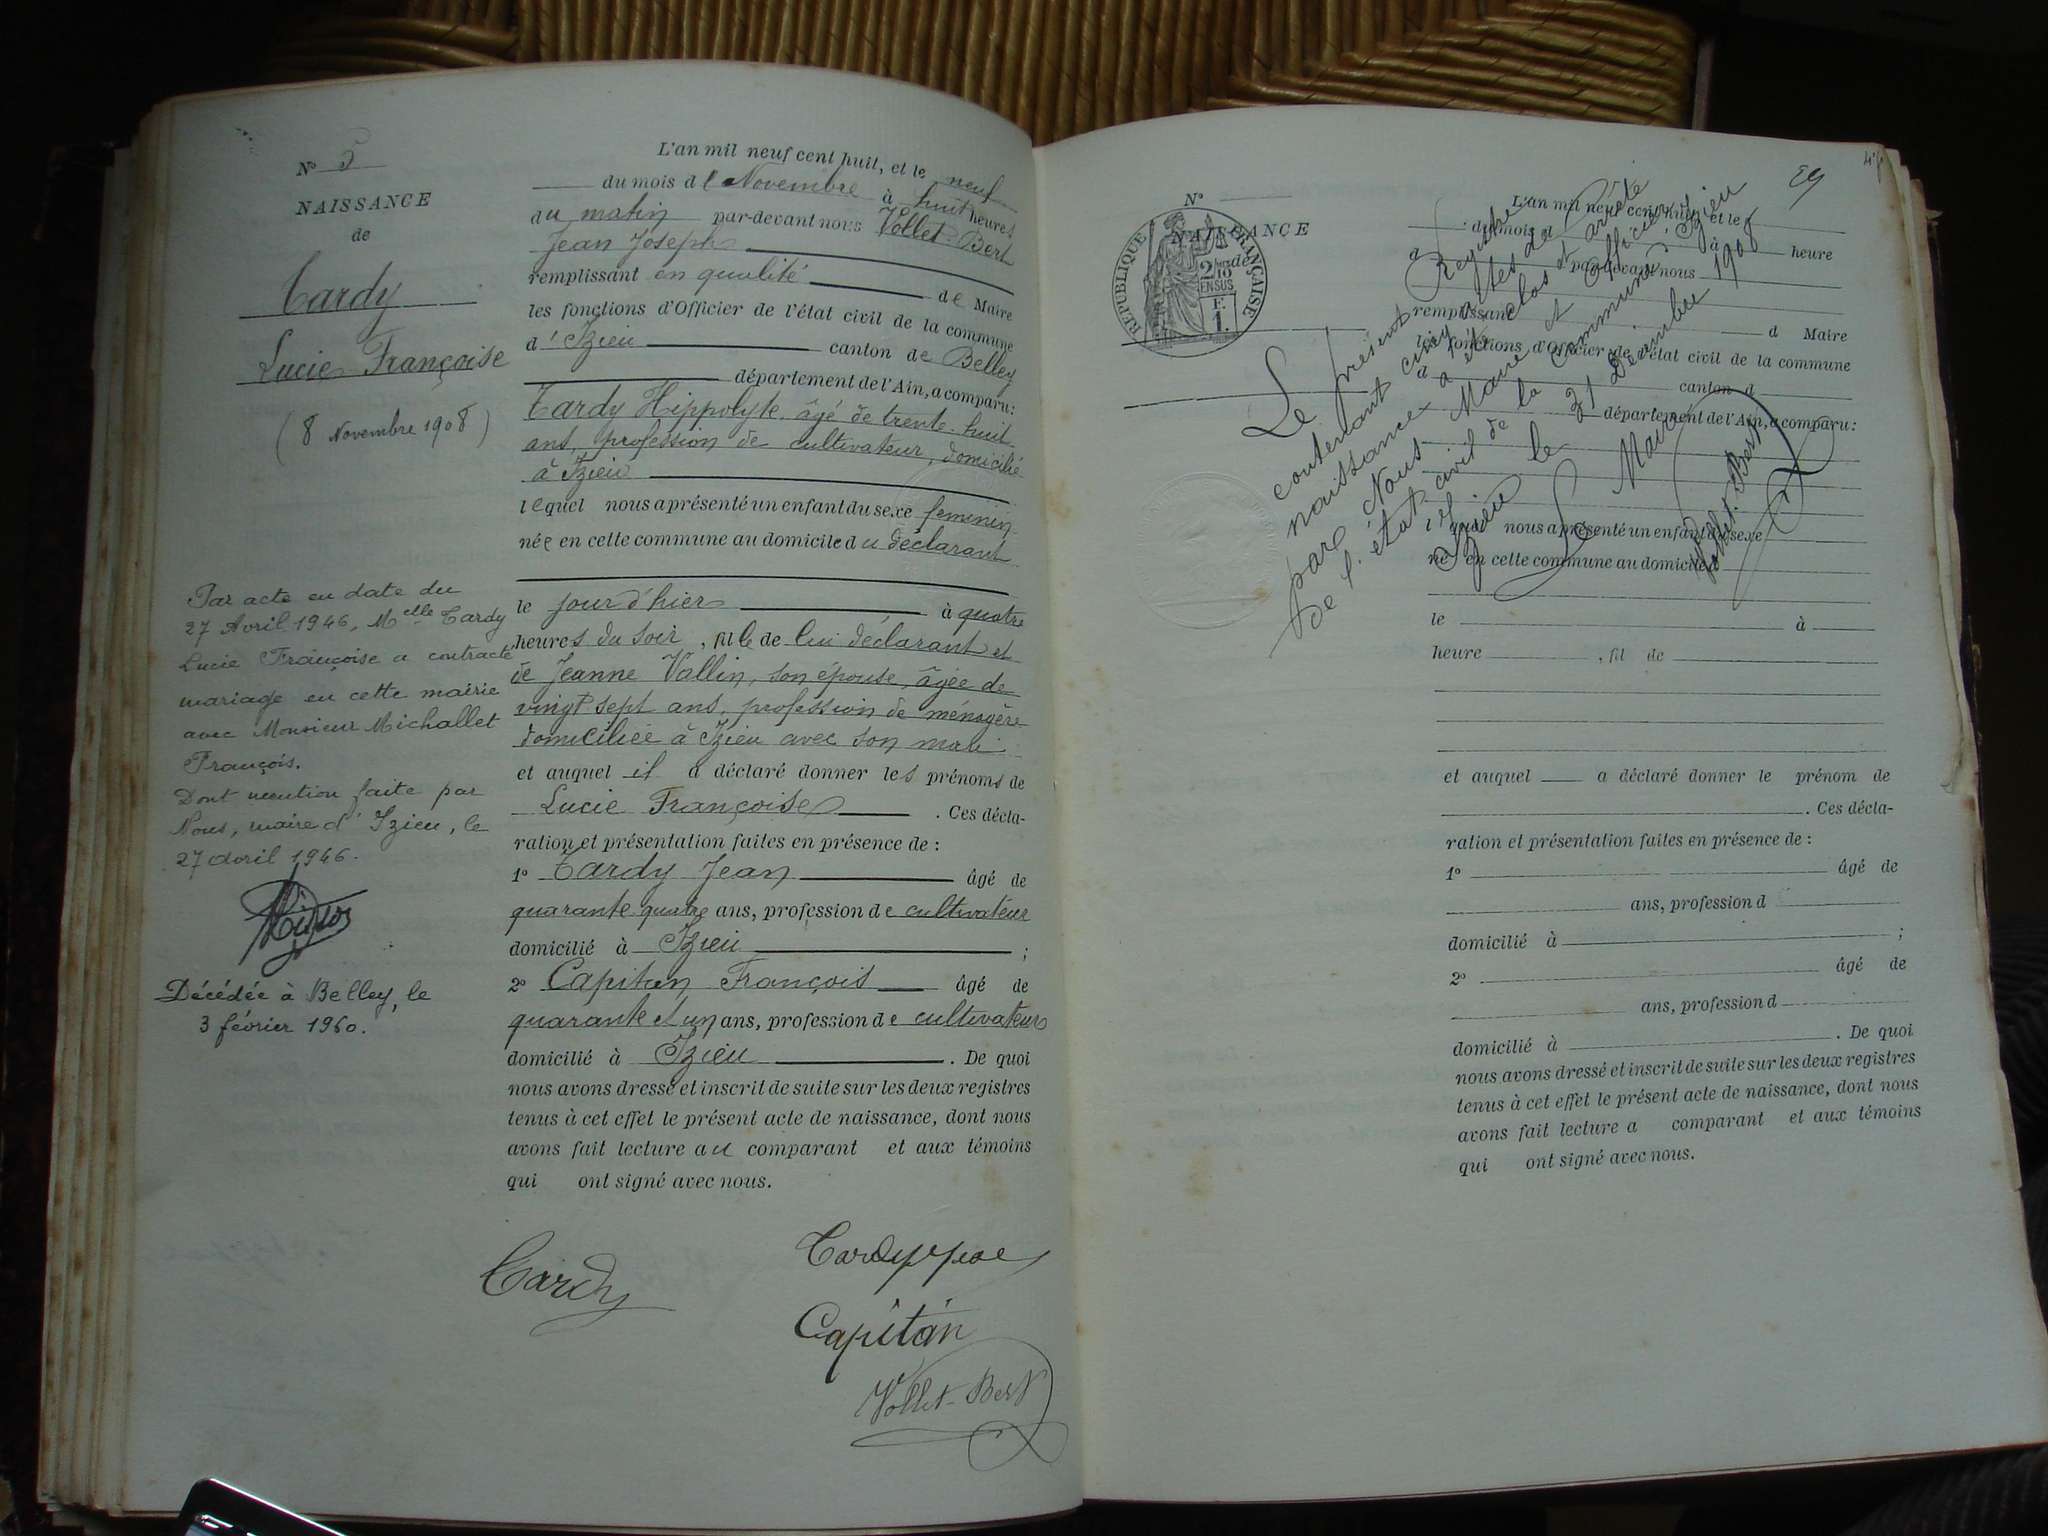 N° 5
NAISSANCE
de
Tardy
Lucie Françoise
(8 Novembre 1908)
Par acte en date du
27 Avril 1946, Melle Tardy
Lucie Françoise a contracté
mariage en cette mairie
avec Monsieur Michallet
François.
Dont mention faite par
Nous, maire d'Izieu, le
27 avril 1946.
Décédée à Belley, le
3 février 1960.
L'an mil neuf cent huit, et le neuf
du mois de Novembre à huit heures
du matin par-devant nous Vollet-Bert
Jean Joseph
remplissant en qualité de Maire
les fonctions d'Officier de l'état civil de la commune
d'Izieu canton de Belley
département de l'Ain, a comparu:
Tardy Hippolyte, âgé de trente-huit
ans, profession de cultivateur, domicilié
à Izieu
lequel nous a présenté un enfant du sexe féminin
née en cette commune au domicile du déclarant
le jour d'hier à quatre
heures du soir, fille de lui déclarant et
de Jeanne Vallin, son épouse, âgée de
vingt sept ans, profession de ménagère
domiciliée à Izieu avec son mari
et auquel il a déclaré donner les prénoms de
Lucie Françoise. Ces décla-
ration et présentation faites en présence de :
1° Tardy Jean âgé de
quarante quatre ans, profession de cultivateur
domicilié à Izieu ;
2° Capitan François âgé de
quarante et un ans, profession de cultivateur
domicilié à Izieu. De quoi
nous avons dressé et inscrit de suite sur les deux registres
tenus à cet effet le présent acte de naissance, dont nous
avons fait lecture au comparant et aux témoins
qui ont signé avec nous.
Tardy
Capitan
Vollet-Bert
N°
NAISSANCE
de
RÉPUBLIQUE FRANÇAISE
2/10
EN SUS
F.
1.
L'an mil neuf cent huit, et le
du mois d
à heure
par-devant nous
remplissant d Maire
les fonctions d'Officier de l'état civil de la commune
d canton d
département de l'Ain, a comparu:
l quel nous a présenté un enfant du sexe
né en cette commune au domicile d
le à
heure , fil de
et auquel a déclaré donner le prénom de
. Ces décla-
ration et présentation faites en présence de :
1° âgé de
ans, profession d
domicilié à ;
2° âgé de
ans, profession d
domicilié à . De quoi
nous avons dressé et inscrit de suite sur les deux registres
tenus à cet effet le présent acte de naissance, dont nous
avons fait lecture a comparant et aux témoins
qui ont signé avec nous.
Le présent Registre
contenant cinq actes de
naissance a été clos et arrêté
par Nous Maire et Officier
de l'état civil de la Commune d'Izieu
Izieu le 31 Décembre 1908
Le Maire
Vollet-Bert